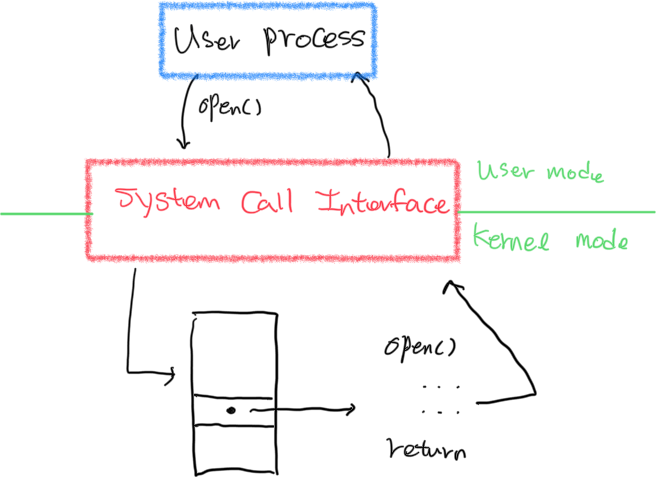 User process
open()
System Call Interface
User mode
Kernel mode
open()
... 
...
return